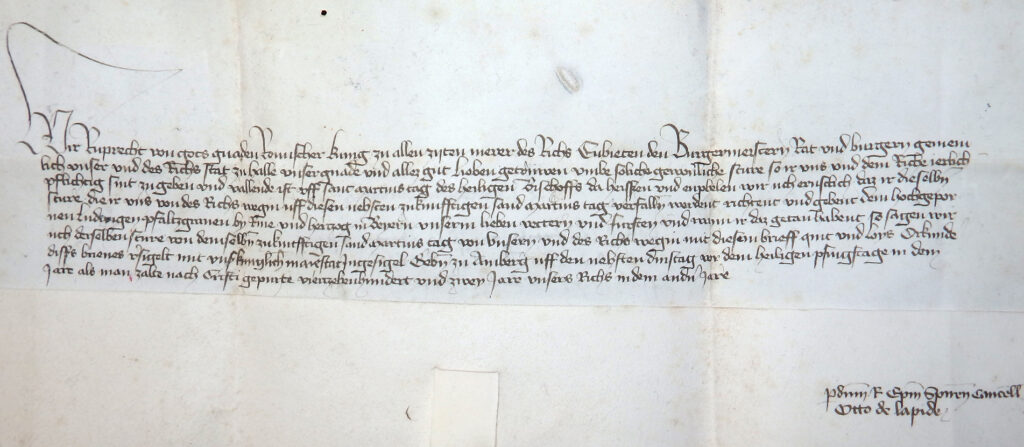 Wir Ruprecht von gots gnaden Romischer kung zu allen zyten merer des Richs Enbieten den Burgermeistern Rat und burgern gemein
lich unser und des Richs Stat zu halle unser gnade und allez gut lieben getruwen umbe soliche gewonliche sture so ir uns und dem Riche ierlich
pflichtig sint zugeben und vallende ist uff sant martins tag des heiligen Bischoffs da heissen und enpfelen wir uch ernstlich daz ir dieselbn
sture die ir uns von des Richs wegin uff diesen nehsten zukunfftigen sand martins tag verfalln werdent richtent und gebent dem hochgepor
nen Ludwigen pfaltzgraven by Rine und hertzog in Beyern unserm lieben vettern und fursten und wann ir daz getan habent so sagen wir
uch derselben sture von demselbn zukunfftigen sand martins tag von unsern und des Richs wegin mit diesem brieff quit und los Orkunde
diss brieves vsigelt mit uns kunglich maiestat ingesigel Gebn zu Amberg uff den nehsten dinstag vor dem heiligen pfingstage in dem
Jare als man zalte nach Cristi gepurte vierzehenhundert und zwey Jare unsers Richs in dem andn Jare
Otto de lapide